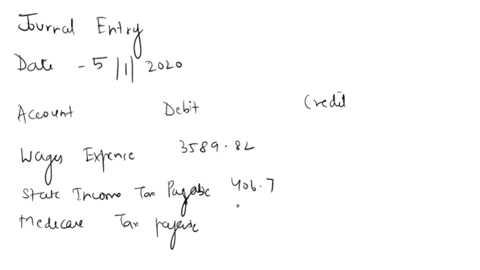 Journal Entry
Date - 5/1/2020
Account Debit Credit
Wages Expense 3589.82
State Income Tax Payable 406.7
Medicare Tax payable